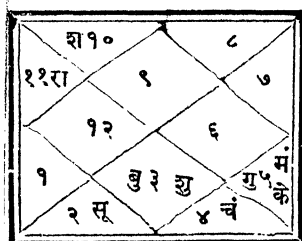 श१० ८
११रा ९ ७
१२ ६
१ बु ३ शु गु ५ मं के
२ सू ४ चं